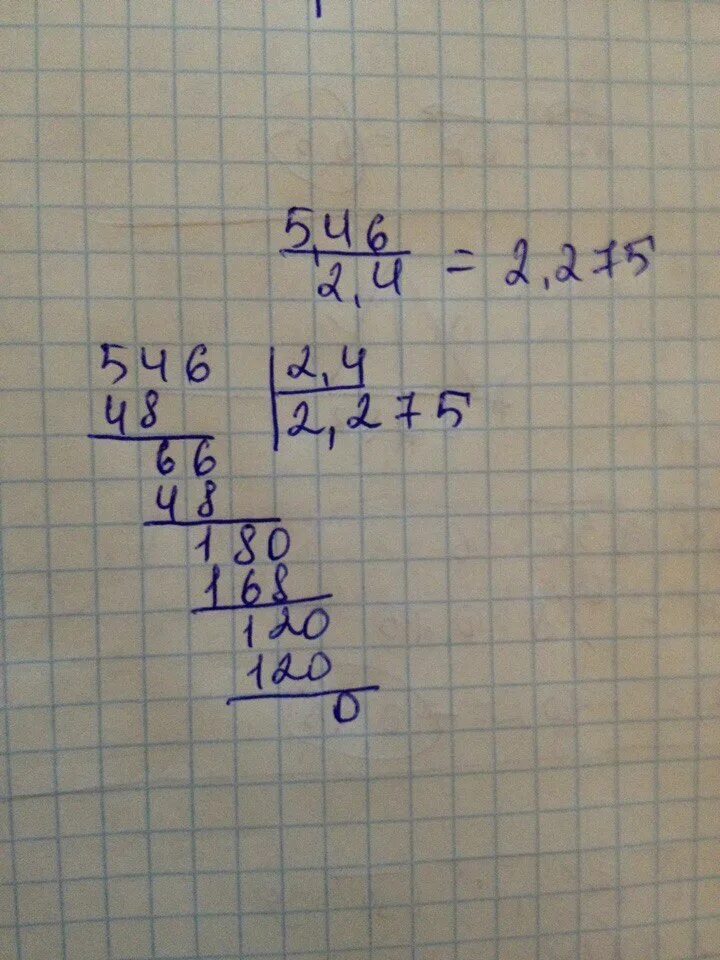 5,46
2,4 = 2,275
546 2,4
48 2,275
66
48
180
168
120
120
0